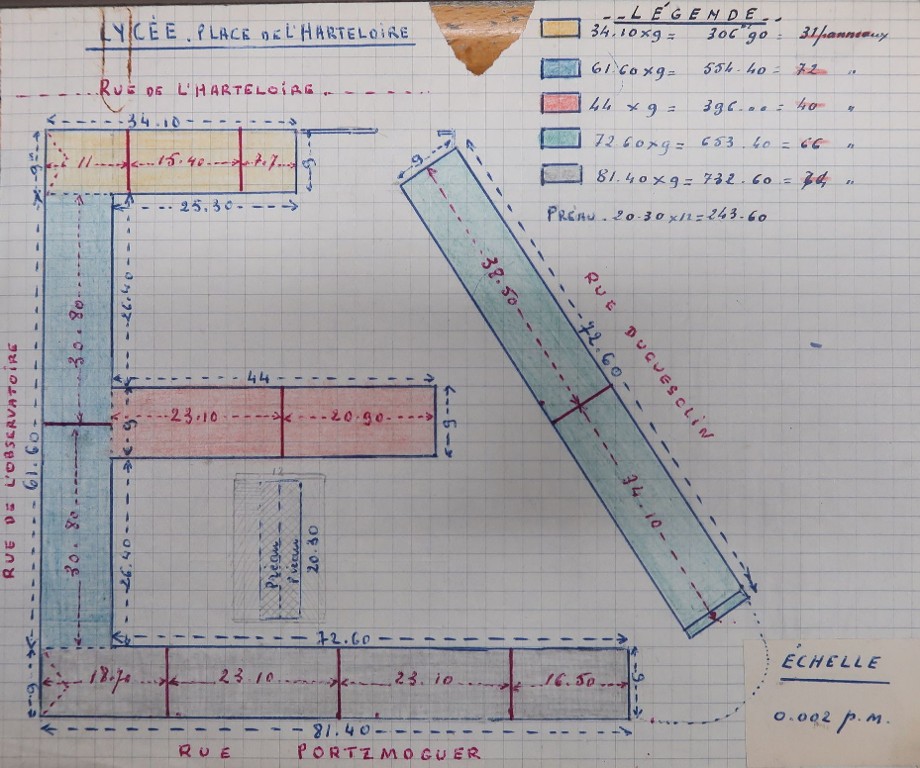 LYCÉE. PLACE DE L'HARTELOIRE
RUE DE L'HARTELOIRE.
LÉGENDE
34.10 x 9 = 306.90 = 31 panneaux
61.60 x 9 = 554.40 = 72 "
44 x 9 = 396.00 = 40 "
72.60 x 9 = 653.40 = 66 "
81.40 x 9 = 732.60 = "
PRÉAU. 20.30 x 12 = 243.60
34.10
9
11
15.40
7.7
9
25.30
9
38.50
72.60
34.10
RUE DUGUESCLIN
RUE DE L'OBSERVATOIRE
61.60
30.80
26.40
44
9
23.10
20.90
9
30.80
26.40
12
Préau
Préau
20.30
72.60
9
18.70
23.10
23.10
16.50
9
81.40
RUE PORTZMOGUER
ÉCHELLE
0.002 p.m.